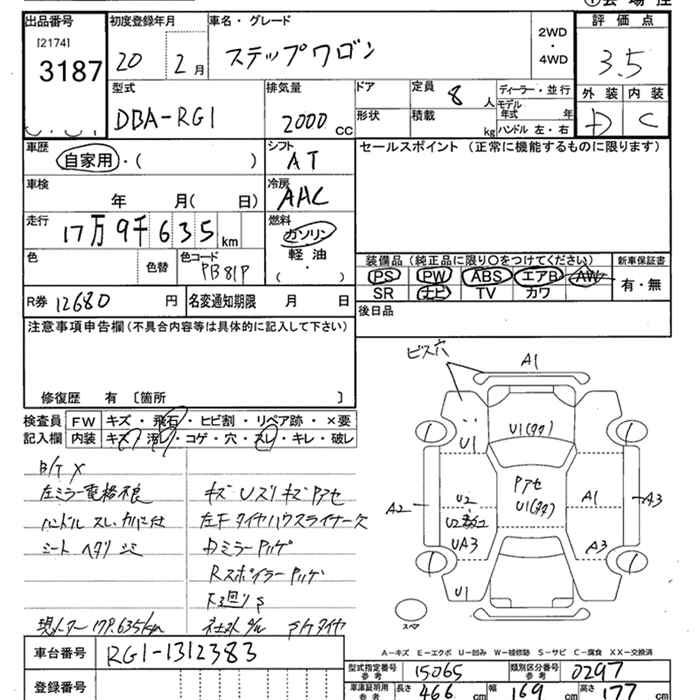 出品番号
[2174]
3187
初度登録年月
20 2月
車名・グレード
ステップワゴン
2WD
・
4WD
評価点
3.5
外装 内装
D C
型式
DBA-RG1
排気量
2000 CC
ドア
形状
定員 8 人
積載 kg
ディーラー・並行
モデル年式 年
ハンドル 左・右
車歴
自家用・( )
シフト
AT
セールスポイント (正常に機能するものに限ります)
車検
年 月( 日)
冷房
AAC
走行
17万9千635km
燃料
ガソリン
軽油
( ・ )
色
色替
色コード
PB81P
装備品 (純正品に限り○をつけてください)
PS PW ABS エアB AW
SR ナビ TV カワ
新車保証書
有・無
R券 12680 円
名変通知期限 月 日
後日品
注意事項申告欄(不具合内容等は具体的に記入して下さい)
修復歴 有 〔箇所 〕
検査員
記入欄
FW キズ・飛石・ヒビ割・リペア跡・×要
内装 キズ・汚レ・コゲ・穴・スレ・キレ・破レ
左ミラー電格不良
シート ヘタリ シミ
キズ Uズリ キズ Pアセ
左F タイヤハウスライナー欠
Rスポイラー Pハゲ
現メーター 179.635km
ビス穴
A1
1 1
U1
U1(多数)
A2
U2
UA3
Pアセ
U1(多数)
A1
A3
A3
1 1
U1
スペア
A-キズ E-エクボ U-凹み W-補修跡 S-サビ C-腐食 XX-交換済
車台番号 RG1-1312383
登録番号
型式指定番号 参考 15065
類別区分番号 参考 0297
車庫証明用 参考 長さ 466 cm 幅 169 cm 高さ 177 cm